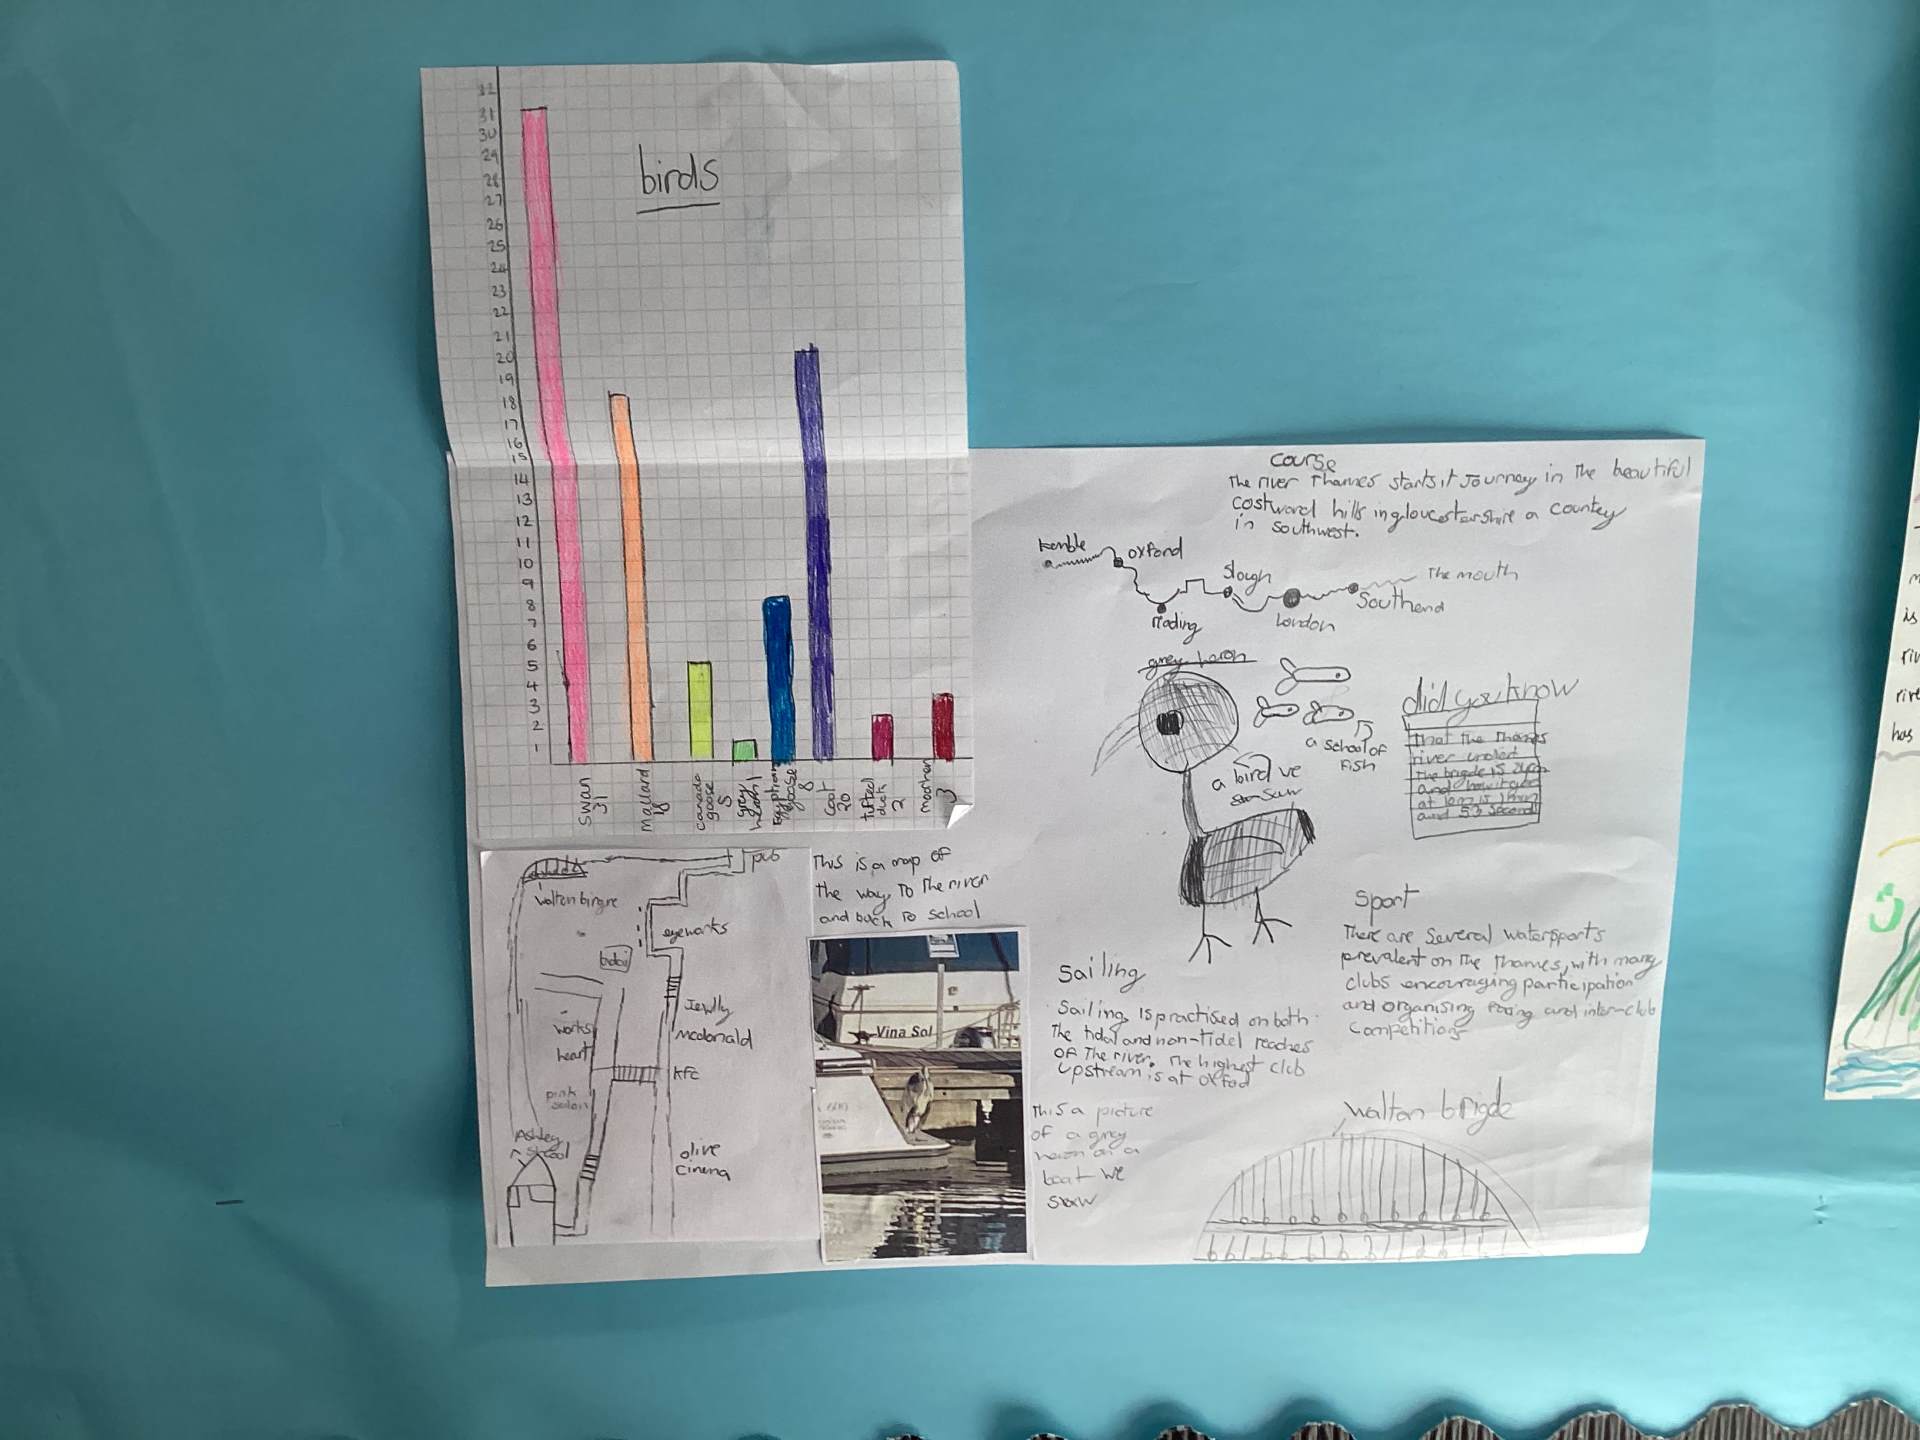 birds
32
31
30
29
28
27
26
25
24
23
22
21
20
19
18
17
16
15
14
13
12
11
10
9
8
7
6
5
4
3
2
1
swan
31
Mallard
18
canada
goose
5
grey
heron
1
Egyptian
goose
8
Coot
20
tufted
duck
2
moorhen
3
course
The river Thames starts it Journey in the beautiful
Costward hills in gloucestershire a country
in southwest.
Kemble
oxford
Slough
The mouth
Southend
London
reading
grey heron
a school of
FISH
a bird ve
saw
did you know
That the Thames
river
The brigde is
and how it
at long is
and 53 second
pub
Walton
eyeworks
works
heart
Jewlly
mcdonald
kfc
pink
salon
Ashley
School
olive
Cinema
This is a map of
the way To the river
and back To school
Vina Sol
This a picture
of a grey
heron on a
boat we
saw
Sailing
Sailing Is practised on both
The tidal and non-tidel reaches
OF The river. The highest club
upstream is at oxfod
Sport
There are Several watersports
prevalent on the Thames, with many
clubs encouraging participation
and organising racing and inter-club
Competitions
Walton brigde